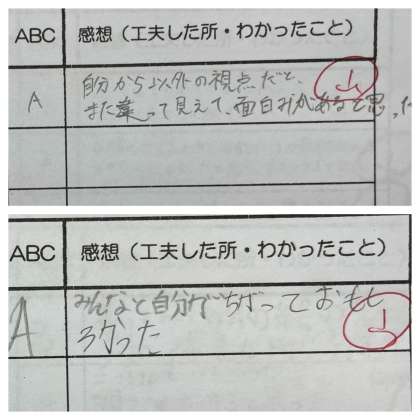 ABC 感想(工夫した所・わかったこと)
A 自分から以外の視点だと、
また違って見えて、面白みがあると思った
ABC 感想(工夫した所・わかったこと)
A みんなと自分がちがっておもし
ろかった